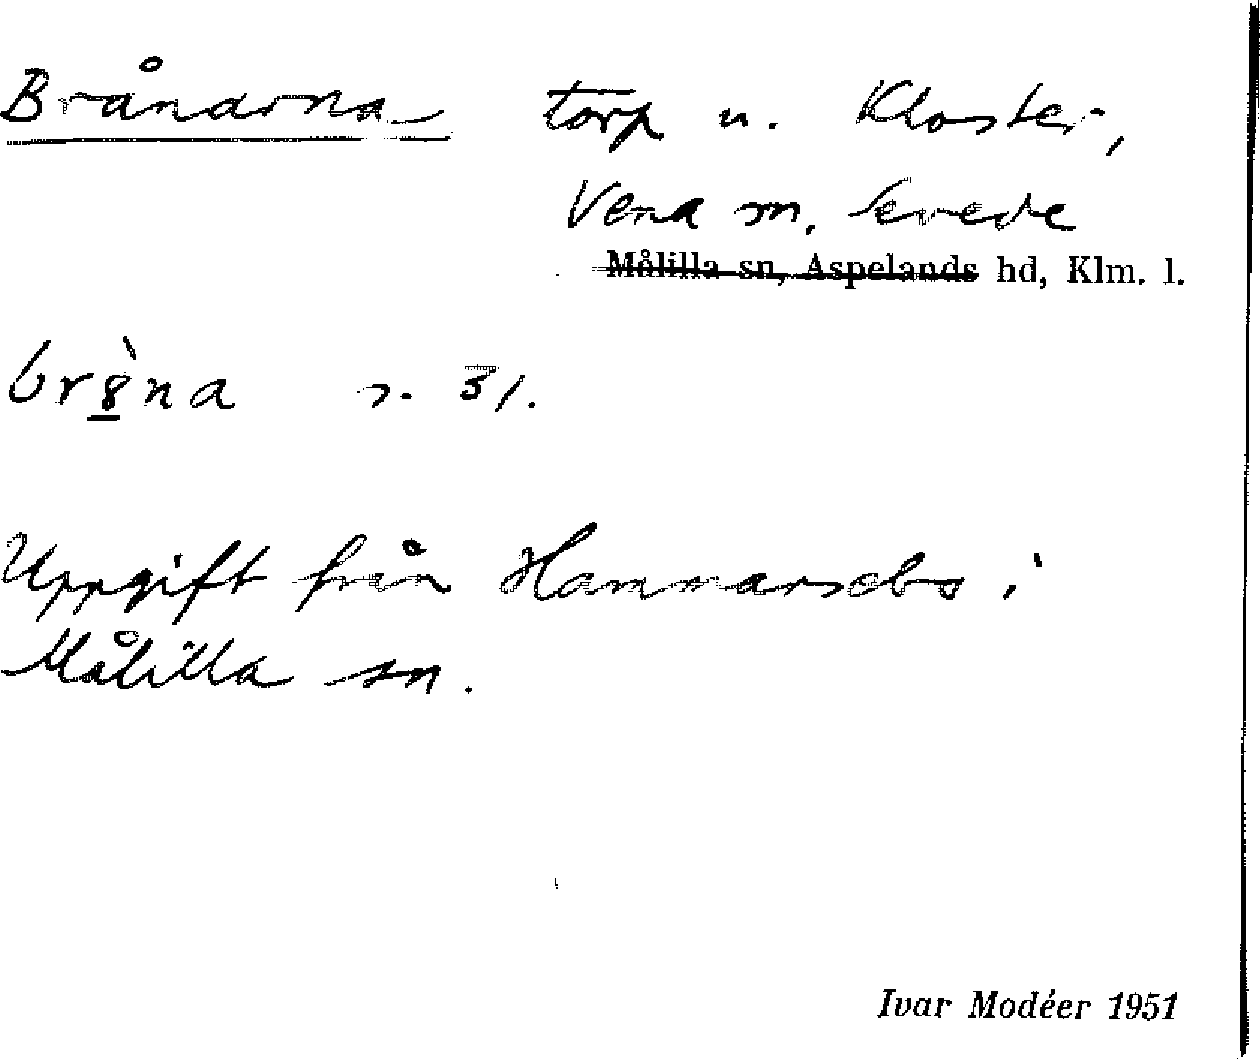 Brånarna torp u. Kloster,
Vena sn, Sevede
Målilla sn, Aspelands hd, Klm. l.
br8̱̀na s. 31.
Uppgift från Hammarsebo i
Målilla sn.
Ivar Modéer 1951